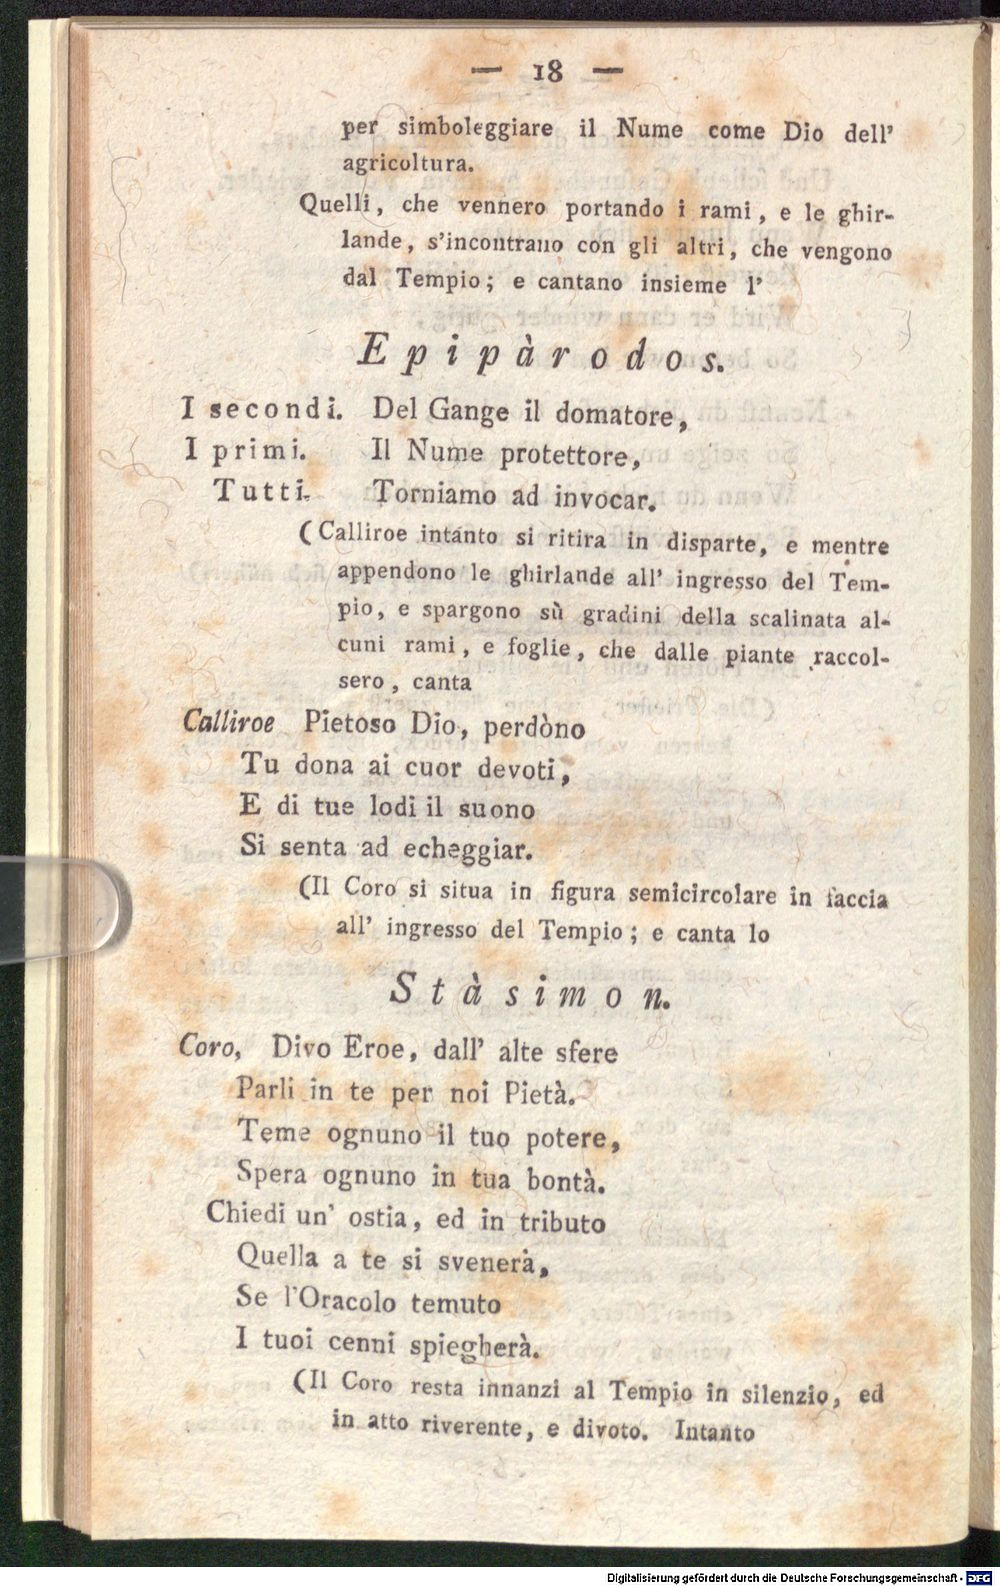 — 18 —
per simboleggiare il Nume come Dio dell'
agricoltura.
Quelli, che vennero portando i rami, e le ghir-
lande, s'incontrano con gli altri, che vengono
dal Tempio; e cantano insieme l'
Epipàrodos.
I secondi. Del Gange il domatore,
I primi. Il Nume protettore,
Tutti. Torniamo ad invocar.
(Calliroe intanto si ritira in disparte, e mentre
appendono le ghirlande all' ingresso del Tem-
pio, e spargono sù gradini della scalinata al-
cuni rami, e foglie, che dalle piante raccol-
sero, canta
Calliroe Pietoso Dio, perdòno
Tu dona ai cuor devoti,
E di tue lodi il suono
Si senta ad echeggiar.
(Il Coro si situa in figura semicircolare in faccia
all' ingresso del Tempio; e canta lo
Stàsimon.
Coro, Divo Eroe, dall' alte sfere
Parli in te per noi Pietà.
Teme ognuno il tuo potere,
Spera ognuno in tua bontà.
Chiedi un' ostia, ed in tributo
Quella a te si svenerà,
Se l'Oracolo temuto
I tuoi cenni spiegherà.
(Il Coro resta innanzi al Tempio in silenzio, ed
in atto riverente, e divoto. Intanto
Digitalisierung gefördert durch die Deutsche Forschungsgemeinschaft - DFG